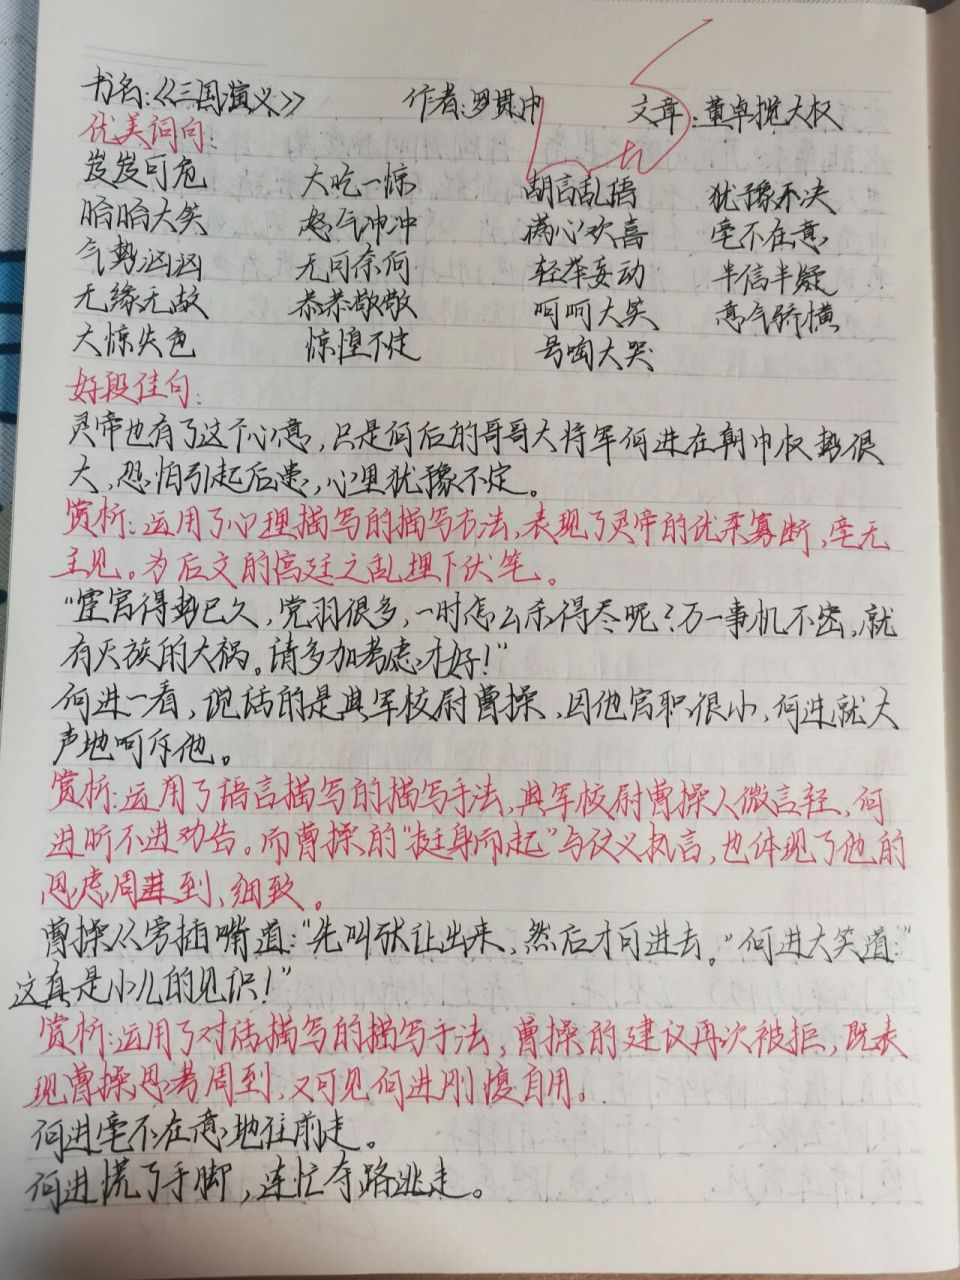 书名:《三国演义》 作者:罗贯中 文章:董卓揽大权
优美词句:
岌岌可危 大吃一惊 胡言乱语 犹豫不决
哈哈大笑 怒气冲冲 满心欢喜 毫不在意
气势汹汹 无可奈何 轻举妄动 半信半疑
无缘无故 恭恭敬敬 呵呵大笑 意气骄横
大惊失色 惊惶不定 号啕大哭
好段佳句:
灵帝也有了这个心意,只是何后的哥哥大将军何进在朝中权势很
大,恐怕引起后患,心里犹豫不定。
赏析:运用了心理描写的描写方法,表现了灵帝的优柔寡断,毫无
主见。为后文的宫廷之乱埋下伏笔。
“宦官得势已久,党羽很多,一时怎么杀得尽呢?万一事机不密,就
有灭族的大祸。请多加考虑才好!”
何进一看,说话的是典军校尉曹操,因他官职很小,何进就大
声地呵斥他。
赏析:运用了语言描写的描写手法,典军校尉曹操人微言轻,何
进听不进劝告。而曹操的“挺身而起”与仗义执言,也体现了他的
思虑周到、细致。
曹操从旁插嘴道:“先叫张让出来,然后才可进去。”何进大笑道:“
这真是小儿的见识!”
赏析:运用了对话描写的描写手法,曹操的建议再次被拒,既表
现曹操思考周到,又可见何进刚愎自用。
何进毫不在意地往前走。
何进慌了手脚,连忙夺路逃走。